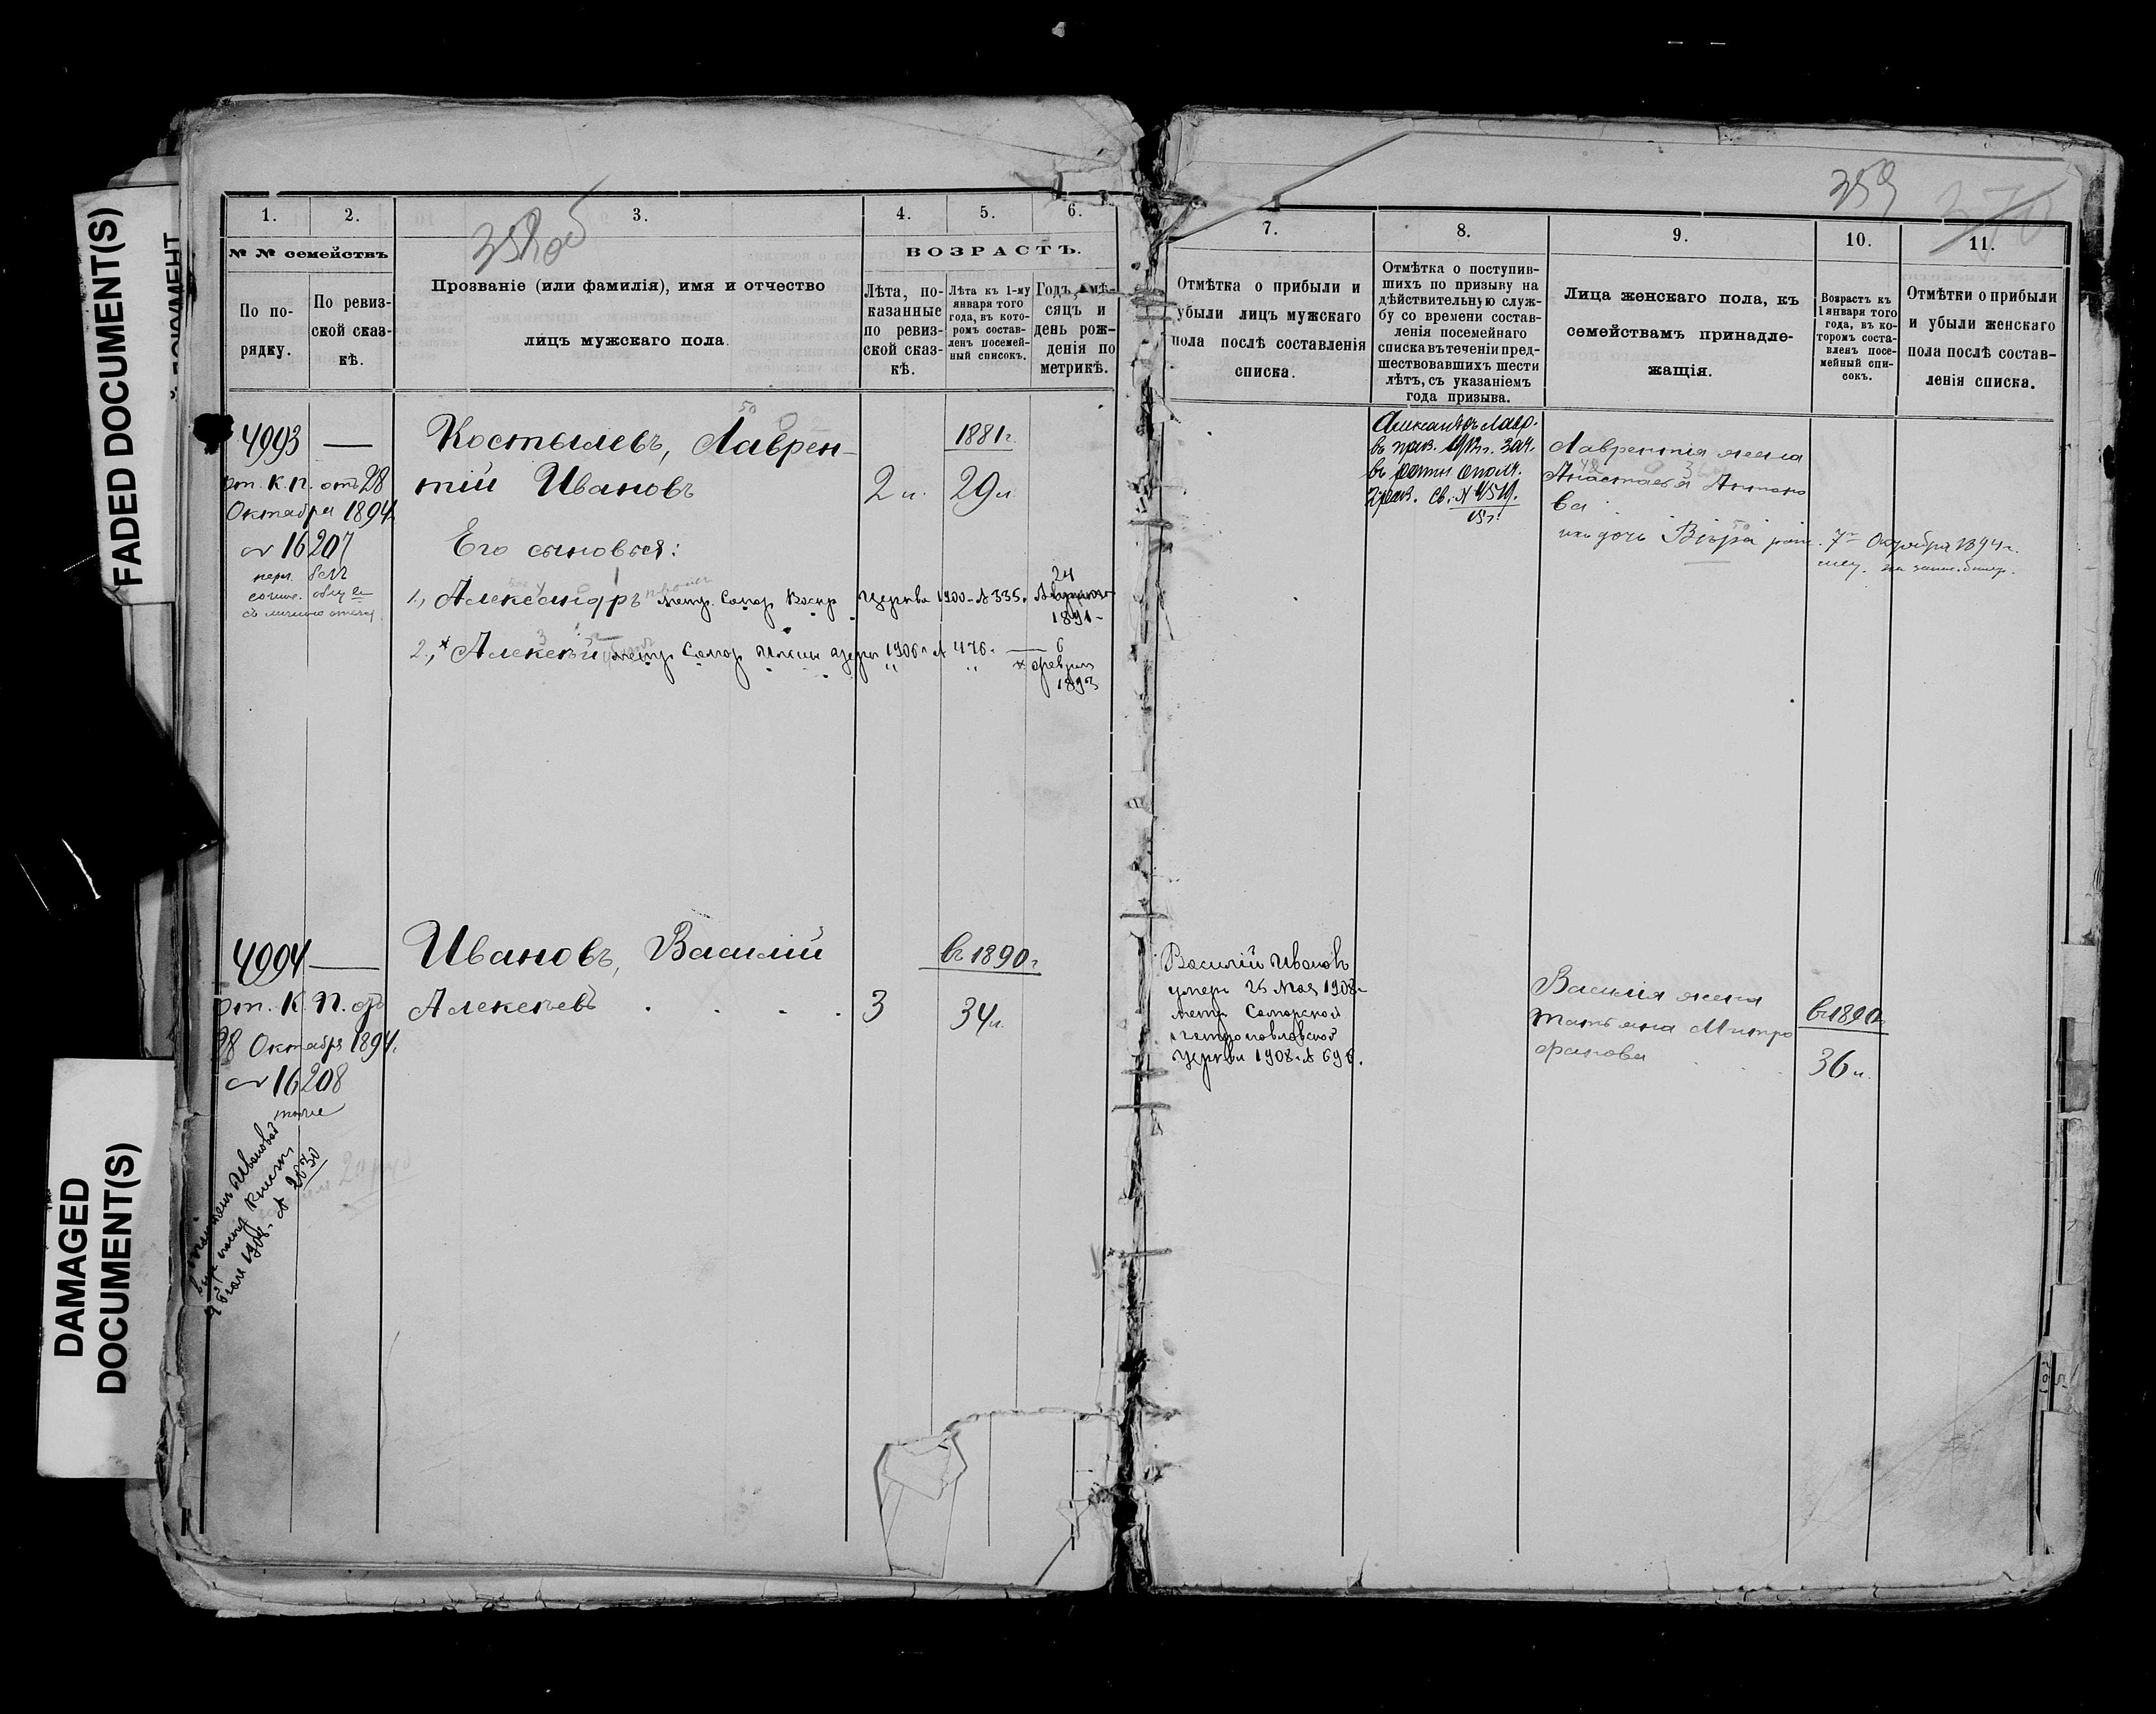 FADED DOCUMENT(S)
DAMAGED
DOCUMENT(S)
358 об
1. 2. 3. 4. 5. 6.
№ № семействъ
По по-
рядку.
По ревиз-
ской сказ-
кѣ.
Прозваніе (или фамилія), имя и отчество
лицъ мужскаго пола.
ВОЗРАСТЪ.
Лѣта, по-
казанные
по ревиз-
ской сказ-
кѣ.
Лѣта къ 1-му
января того
года, въ кото-
ромъ состав-
ленъ посемей-
ный списокъ.
Годъ, мѣ-
сяцъ и
день рож-
денія по
метрикѣ.
4993 —
от. К. П. отъ 28
Октября 1894
за 16207
Костылевъ, Лаврен-
тій Ивановъ
2 л.
1881 г.
29 л.
Его сыновья:
1., Александръ метр. Самар. Воскр. Церкви 1900 № 335.
24
1891
2., Алексѣй метр. Самар. церкви 1906 г. № 476.
6
февраля
1893
4994 —
от. К. П. отъ
28 Октября 1894.
за 16208
Ивановъ, Василій
Алексѣевъ
3
въ 1890 г.
34 л.
Ивановой
1908 г. №
359
7. 8. 9. 10. 11.
Отмѣтка о прибыли и
убыли лицъ мужскаго
пола послѣ составленія
списка.
Отмѣтка о поступив-
шихъ по призыву на
дѣйствительную служ-
бу со времени состав-
ленія посемейнаго
списка въ теченіи пред-
шествовавшихъ шести
лѣтъ, съ указаніемъ
года призыва.
Лица женскаго пола, къ
семействамъ принадле-
жащія.
Возрастъ къ
1 января того
года, въ ко-
торомъ соста-
вленъ посе-
мейный спи-
сокъ.
Отмѣтки о прибыли
и убыли женскаго
пола послѣ состав-
ленія списка.
Александръ Лавр.
въ приз. 1912 г. зач.
въ ратн. ополч.
2 разр. св. №
15 г.
Лаврентія жена
Анастасія Антоно
ва
ихъ дочь Вѣра 7 Октября 1894 г.
Василій Ивановъ
умеръ 26 Мая 1908
метр. Самарской
Петропавловской
Церкви 1908 г. № 696.
Василія жена
Татьяна Митро
фанова
въ 1890 г.
36 л.